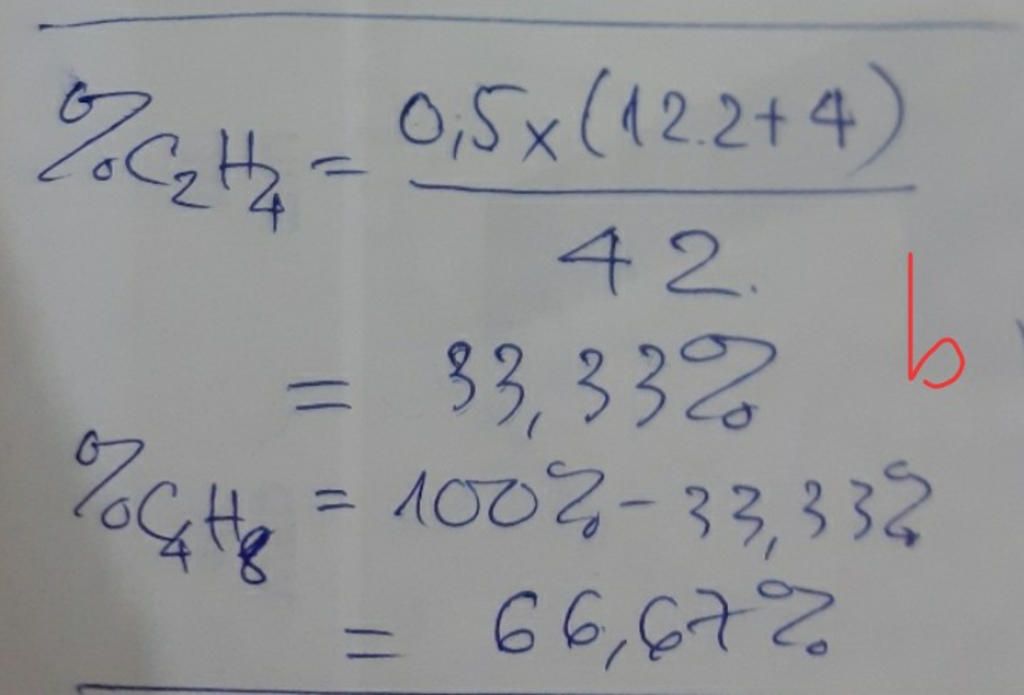 %C₂H₄ = 0,5x(12.2+4)
42.
= 33,33%
b
%C₄H₈ = 100% - 33,33%
= 66,67%